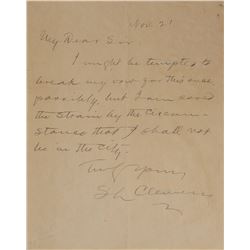 Nov. 21
My Dear Sir:
I might be tempted to
break my vow for this once,
possibly, but I am saved
the strain by the circum-
stance that I shall not
be in the city.
Truly Yours
S L Clemens